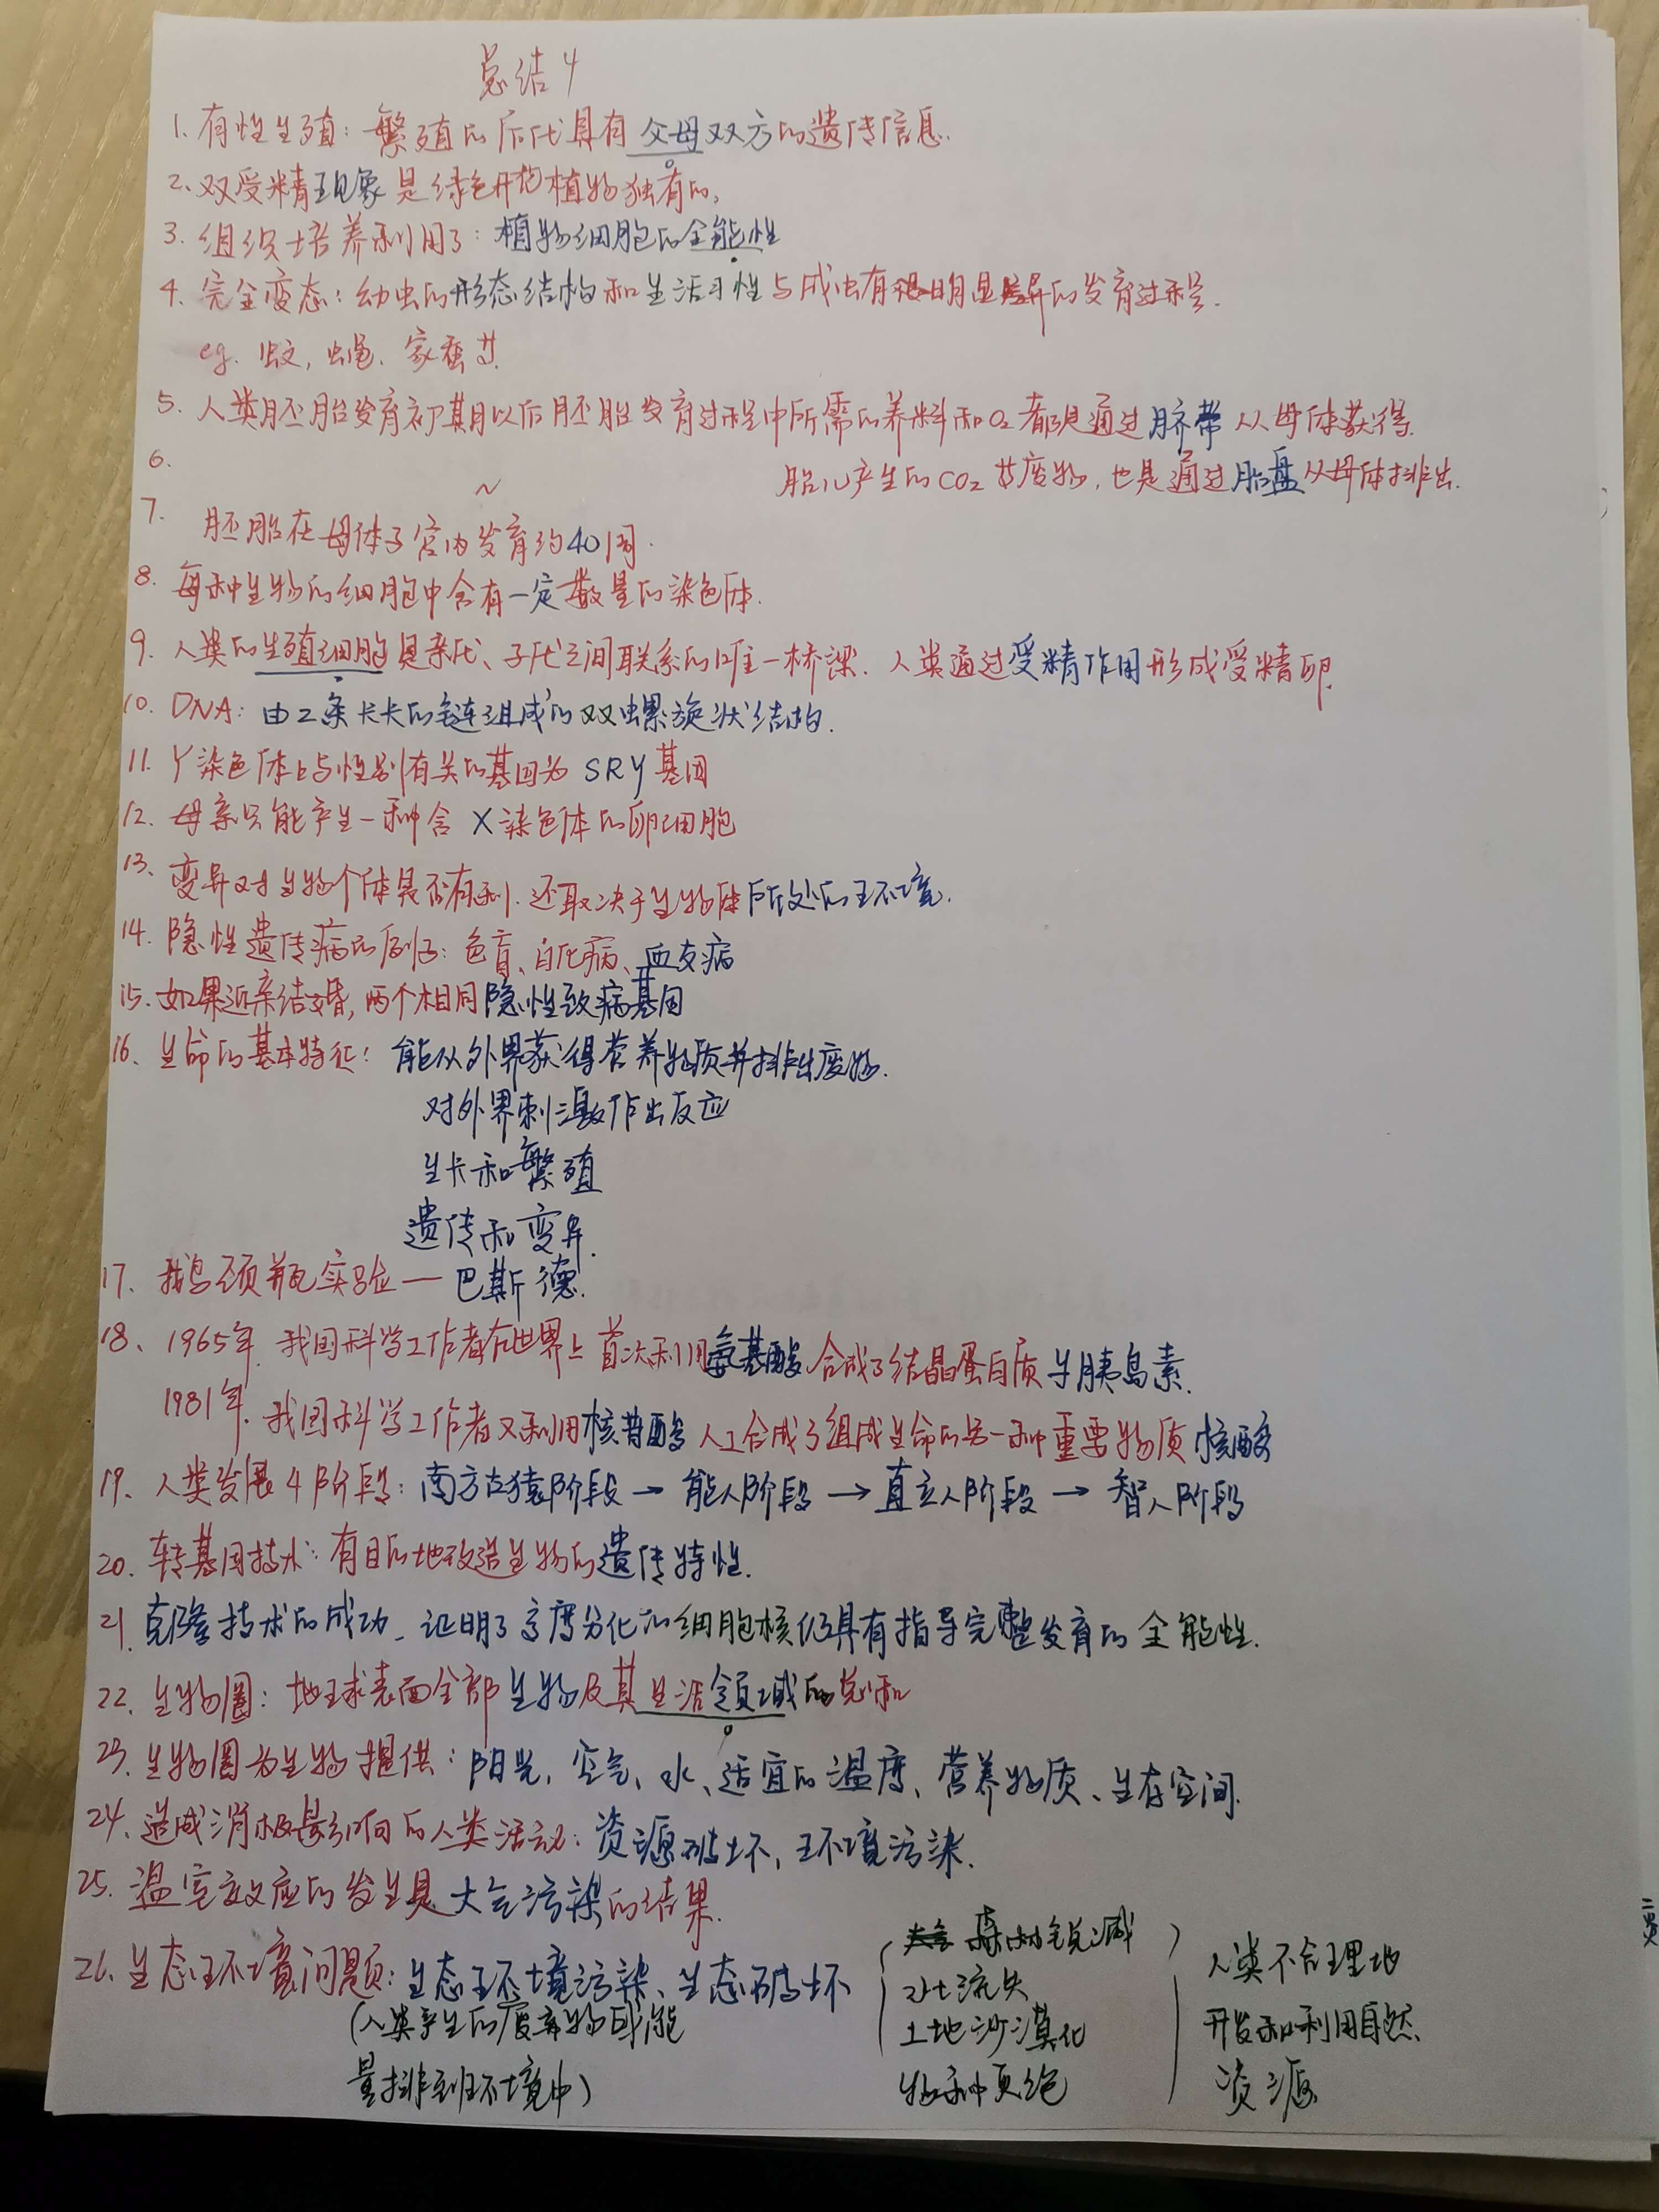 总结4
1. 有性生殖：繁殖的后代具有父母双方的遗传信息.
2. 双受精现象是绿色开花植物独有的,
3. 组织培养利用了：植物细胞的全能性
4. 完全变态：幼虫的形态结构和生活习性与成虫有明显差异的发育过程.
eg. 蚊, 蝇、家蚕等.
5. 人类胚胎发育初期以后胚胎发育过程中所需的养料和O₂都是通过脐带从母体获得.
6. ~ 胎儿产生的CO₂等废物, 也是通过胎盘从母体排出.
7. 胚胎在母体子宫内发育约40周.
8. 每种生物的细胞中含有一定数量的染色体.
9. 人类的生殖细胞是亲代、子代之间联系的唯一桥梁. 人类通过受精作用形成受精卵.
10. DNA：由2条长长的链组成的双螺旋状结构.
11. Y染色体上与性别有关的基因为 SRY基因
12. 母亲只能产生一种含 X染色体的卵细胞
13、变异对生物个体是否有利. 还取决于生物体所处的环境.
14. 隐性遗传病的例子：色盲、白化病、血友病
15. 如果近亲结婚, 两个相同隐性致病基因
16、生命的基本特征：能从外界获得营养物质并排出废物.
对外界刺激作出反应
生长和繁殖
遗传和变异.
17、鹅颈瓶实验—巴斯德.
18、1965年. 我国科学工作者在世界上首次利用氨基酸合成了结晶蛋白质牛胰岛素.
1981年. 我国科学工作者又利用核苷酸人工合成了组成生命的另一种重要物质核酸
19、人类发展4阶段：南方古猿阶段→能人阶段→直立人阶段→智人阶段
20. 转基因技术：有目的地改造生物的遗传特性.
21. 克隆技术的成功_证明了高度分化的细胞核仍具有指导完整发育的全能性.
22. 生物圈：地球表面全部生物及其生活领域的总和
23. 生物圈为生物提供：阳光, 空气、水、适宜的温度、营养物质、生存空间.
24、造成消极影响的人类活动：资源破坏, 环境污染.
25. 温室效应的发生是大气污染的结果.
26. 生态环境问题：生态环境污染、生态破坏
(人类产生的废弃物或能
量排到环境中)
森林锐减
水土流失
土地沙漠化
物种灭绝
人类不合理地
开发和利用自然
资源